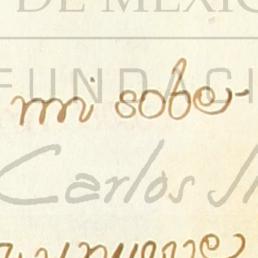 DE MÉXICO
FUNDACI
mi sobe
Carlos Sl